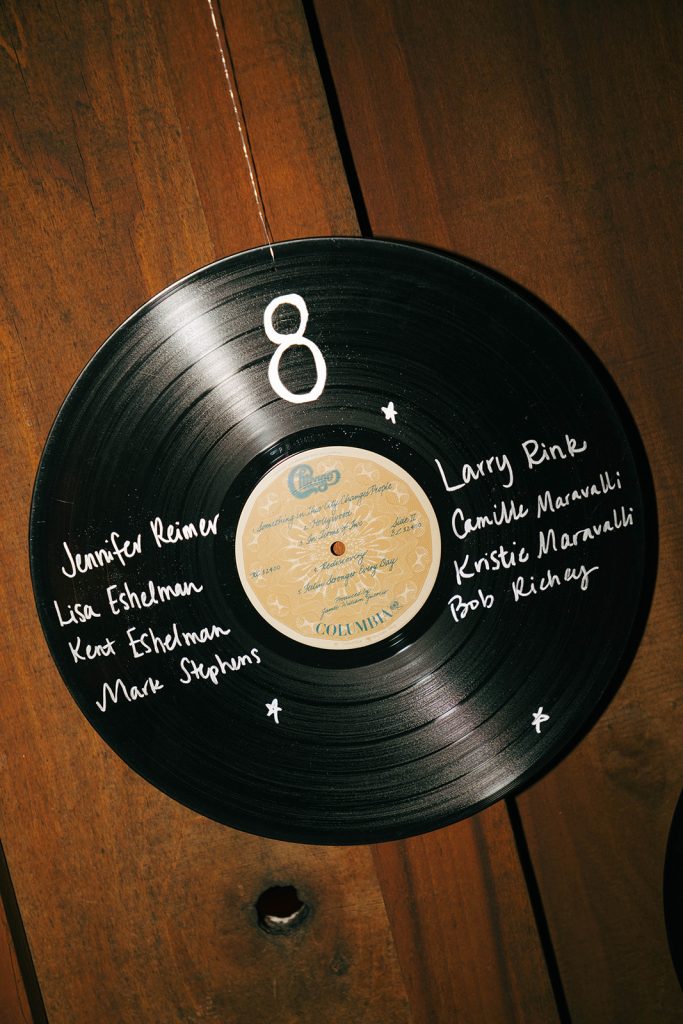 8
Jennifer Reimer
Lisa Eshelman
Kent Eshelman
Mark Stephens
Larry Rink
Camille Maravalli
Kristie Maravalli
Bob Richey
Chicago
1. Something in This City Changes People
2. Hollywood
3. In Terms of Two
Side II
KC 32400
4. Rediscovery
5. Feelin' Stronger Every Day
Produced by
James William Guercio
COLUMBIA